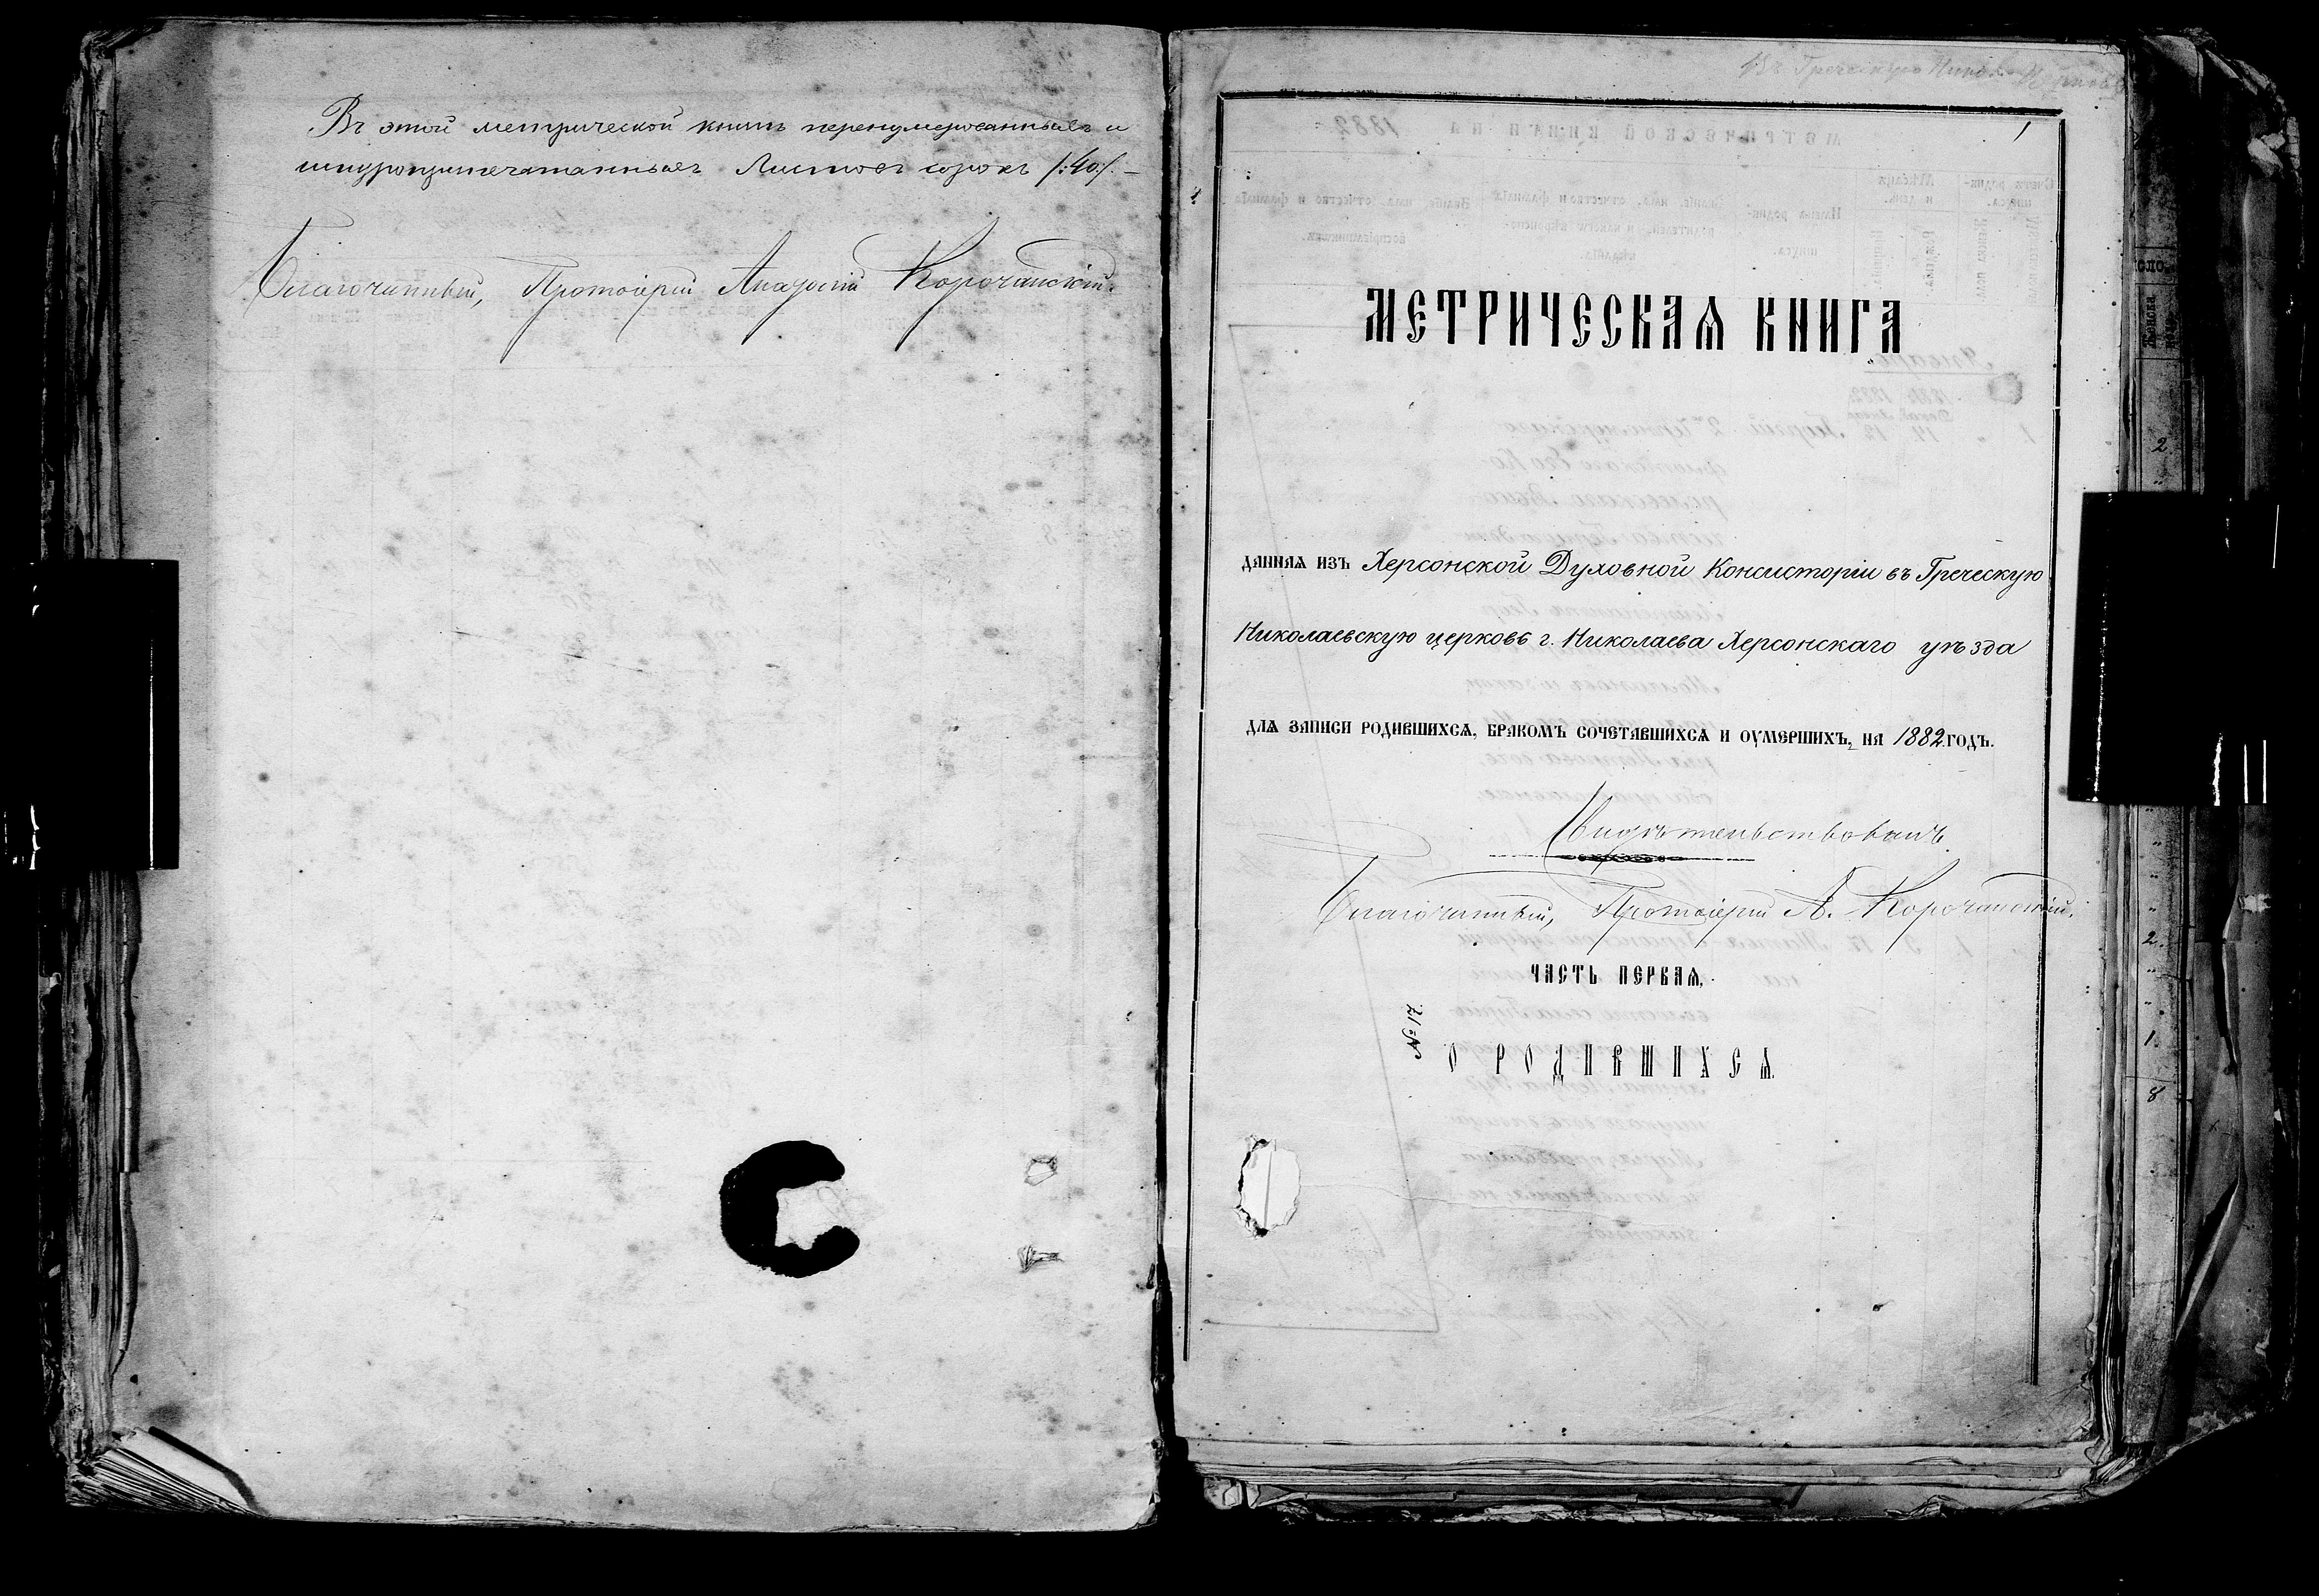 Въ этой метрической книгѣ перенумерованныхъ и
шнуроприпечатанныхъ Листовъ сорокъ /:40:/. —
Благочинный, Протоіерей Корочанскій.
Въ Греческую
1
МЕТРИЧЕСКАѦ КНИГА
ДАННАѦ ИЗЪ Херсонской Духовной Консисторіи въ Греческую
Николаевскую церковь г. Николаева Херсонскаго уѣзда
ДЛѦ ЗАПИСИ РОДИВШИХСѦ, БРАКОМЪ СОЧЕТАВШИХСѦ И ОУМЕРШИХЪ, НА 1882 ГОДЪ.
Свидѣтельствовалъ
Благочинный, Протоіерей А. Корочанскій.
ЧАСТЬ ПЕРВАѦ,
№ 17.
О РОДИВШИХСѦ
2
2.
1.
8